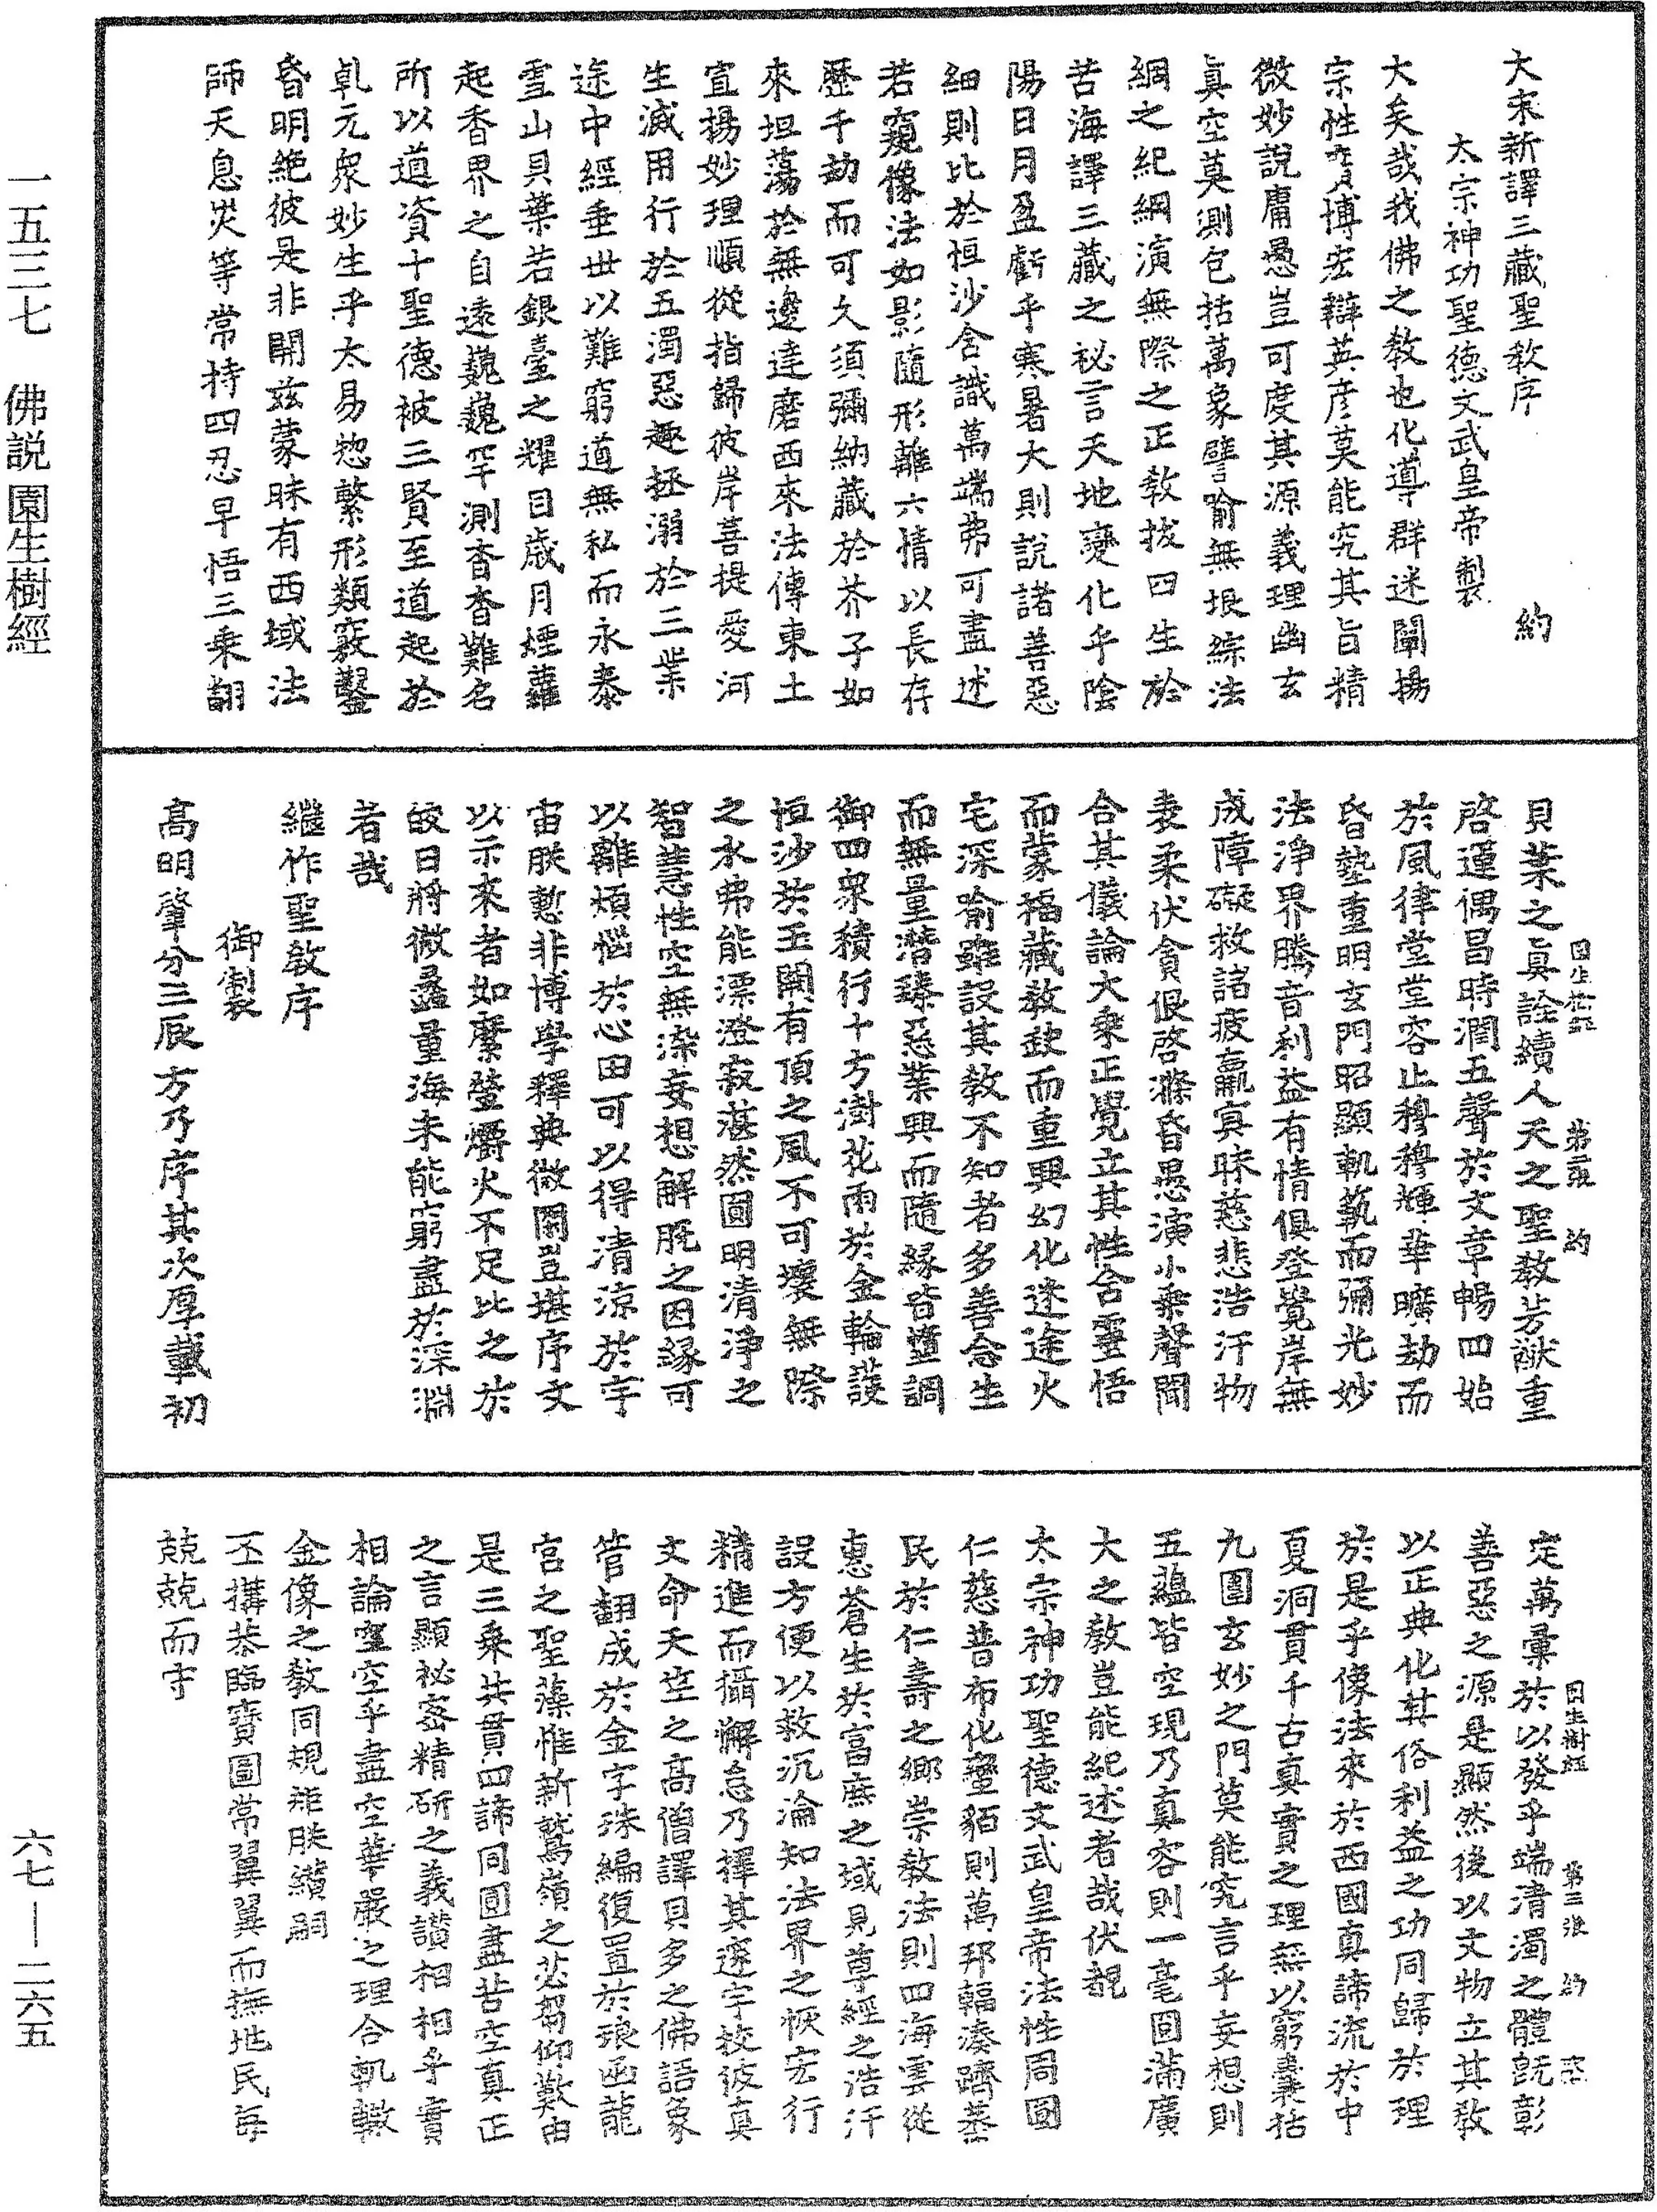 大宋新譯三藏聖教序　約
太宗神功聖德文武皇帝製
大矣哉我佛之教也化導群迷闡揚
宗性廣博宏辯英彦莫能究其旨精
微妙說庸愚豈可度其源義理幽玄
真空莫測包括萬象譬喻無垠綜法
綱之紀綱演無際之正教拔四生於
苦海譯三藏之祕言天地變化乎陰
陽日月盈虧乎寒暑大則說諸善惡
細則比於恒沙含識萬端弗可盡述
若窺像法如影隨形離六情以長存
歷千劫而可久須彌納藏於芥子如
來坦蕩於無邊達磨西來法傳東土
宣揚妙理順從指歸彼岸菩提愛河
生滅用行於五濁惡趣拯溺於三業
途中經垂世以難窮道無私而永泰
雪山貝葉若銀臺之耀目歲月煙蘿
起香界之自遠巍巍罕測杳杳難名
所以道資十聖德被三賢至道起於
乹元衆妙生乎太易惣繁形類竅鑿
昏明絶彼是非開兹蒙昧有西域法
師天息灾等常持四忍早悟三乘翻
園生樹經　第二張　約
貝葉之真詮續人天之聖教芳猷重
啓運偶昌時潤五聲於文章暢四始
於風律堂堂容止穆穆輝華曠劫而
昏墊重明玄門昭顯軌範而彌光妙
法淨界騰音利益有情俱登覺岸無
成障礙救諸疲羸冥昧慈悲浩汗物
表柔伏貪佷啓滌昏愚演小乘聲聞
合其儀論大乘正覺立其性含靈悟
而蒙福藏教缺而重興幻化迷途火
宅深喻雖設其教不知者多善念生
而無量潛臻惡業興而隨緣皆墮調
御四衆積行十方澍花雨於金輪護
恒沙於玉闕有頂之風不可壞無際
之水弗能漂澄寂湛然圓明清淨之
智慧性空無染妄想解脱之因緣可
以離煩惱於心田可以得清涼於宇
宙朕慙非博學釋典微閑豈堪序文
以示來者如縻螢爝火不足比之於
皎日將微蠡量海未能窮盡於深淵
者哉
繼作聖教序
御製
高明肇分三辰方乃序其次厚載初
園生樹經　第三張　約
定萬彙於以發乎端清濁之體既彰
善惡之源是顯然後以文物立其教
以正典化其俗利益之功同歸於理
於是乎像法來於西國真諦流於中
夏洞貫千古真實之理無以窮囊括
九圍玄妙之門莫能究言乎妄想則
五蘊皆空現乃真容則一毫圓滿廣
大之教豈能紀述者哉伏覩
太宗神功聖德文武皇帝法性周圓
仁慈普布化蠻貊則萬邦輻湊躋蒸
民於仁壽之鄉崇教法則四海雲從
惠蒼生於富庶之域見尊經之浩汗
設方便以救沉淪知法界之恢宏行
精進而攝懈怠乃擇其邃宇校彼真
文命天竺之高僧譯貝多之佛語象
管翻成於金字珠編復置於琅函龍
宮之聖藻惟新鷲嶺之苾蒭仰歎由
是三乘共貫四諦同圓盡苦空真正
之言顯祕密精研之義讚相相乎實
相論空空乎盡空華嚴之理合軌轍
金像之教同規矩朕纘嗣
丕搆恭臨寶圖常翼翼而撫地民每
兢兢而守
一五三七　佛説園生樹經
六七—二六五